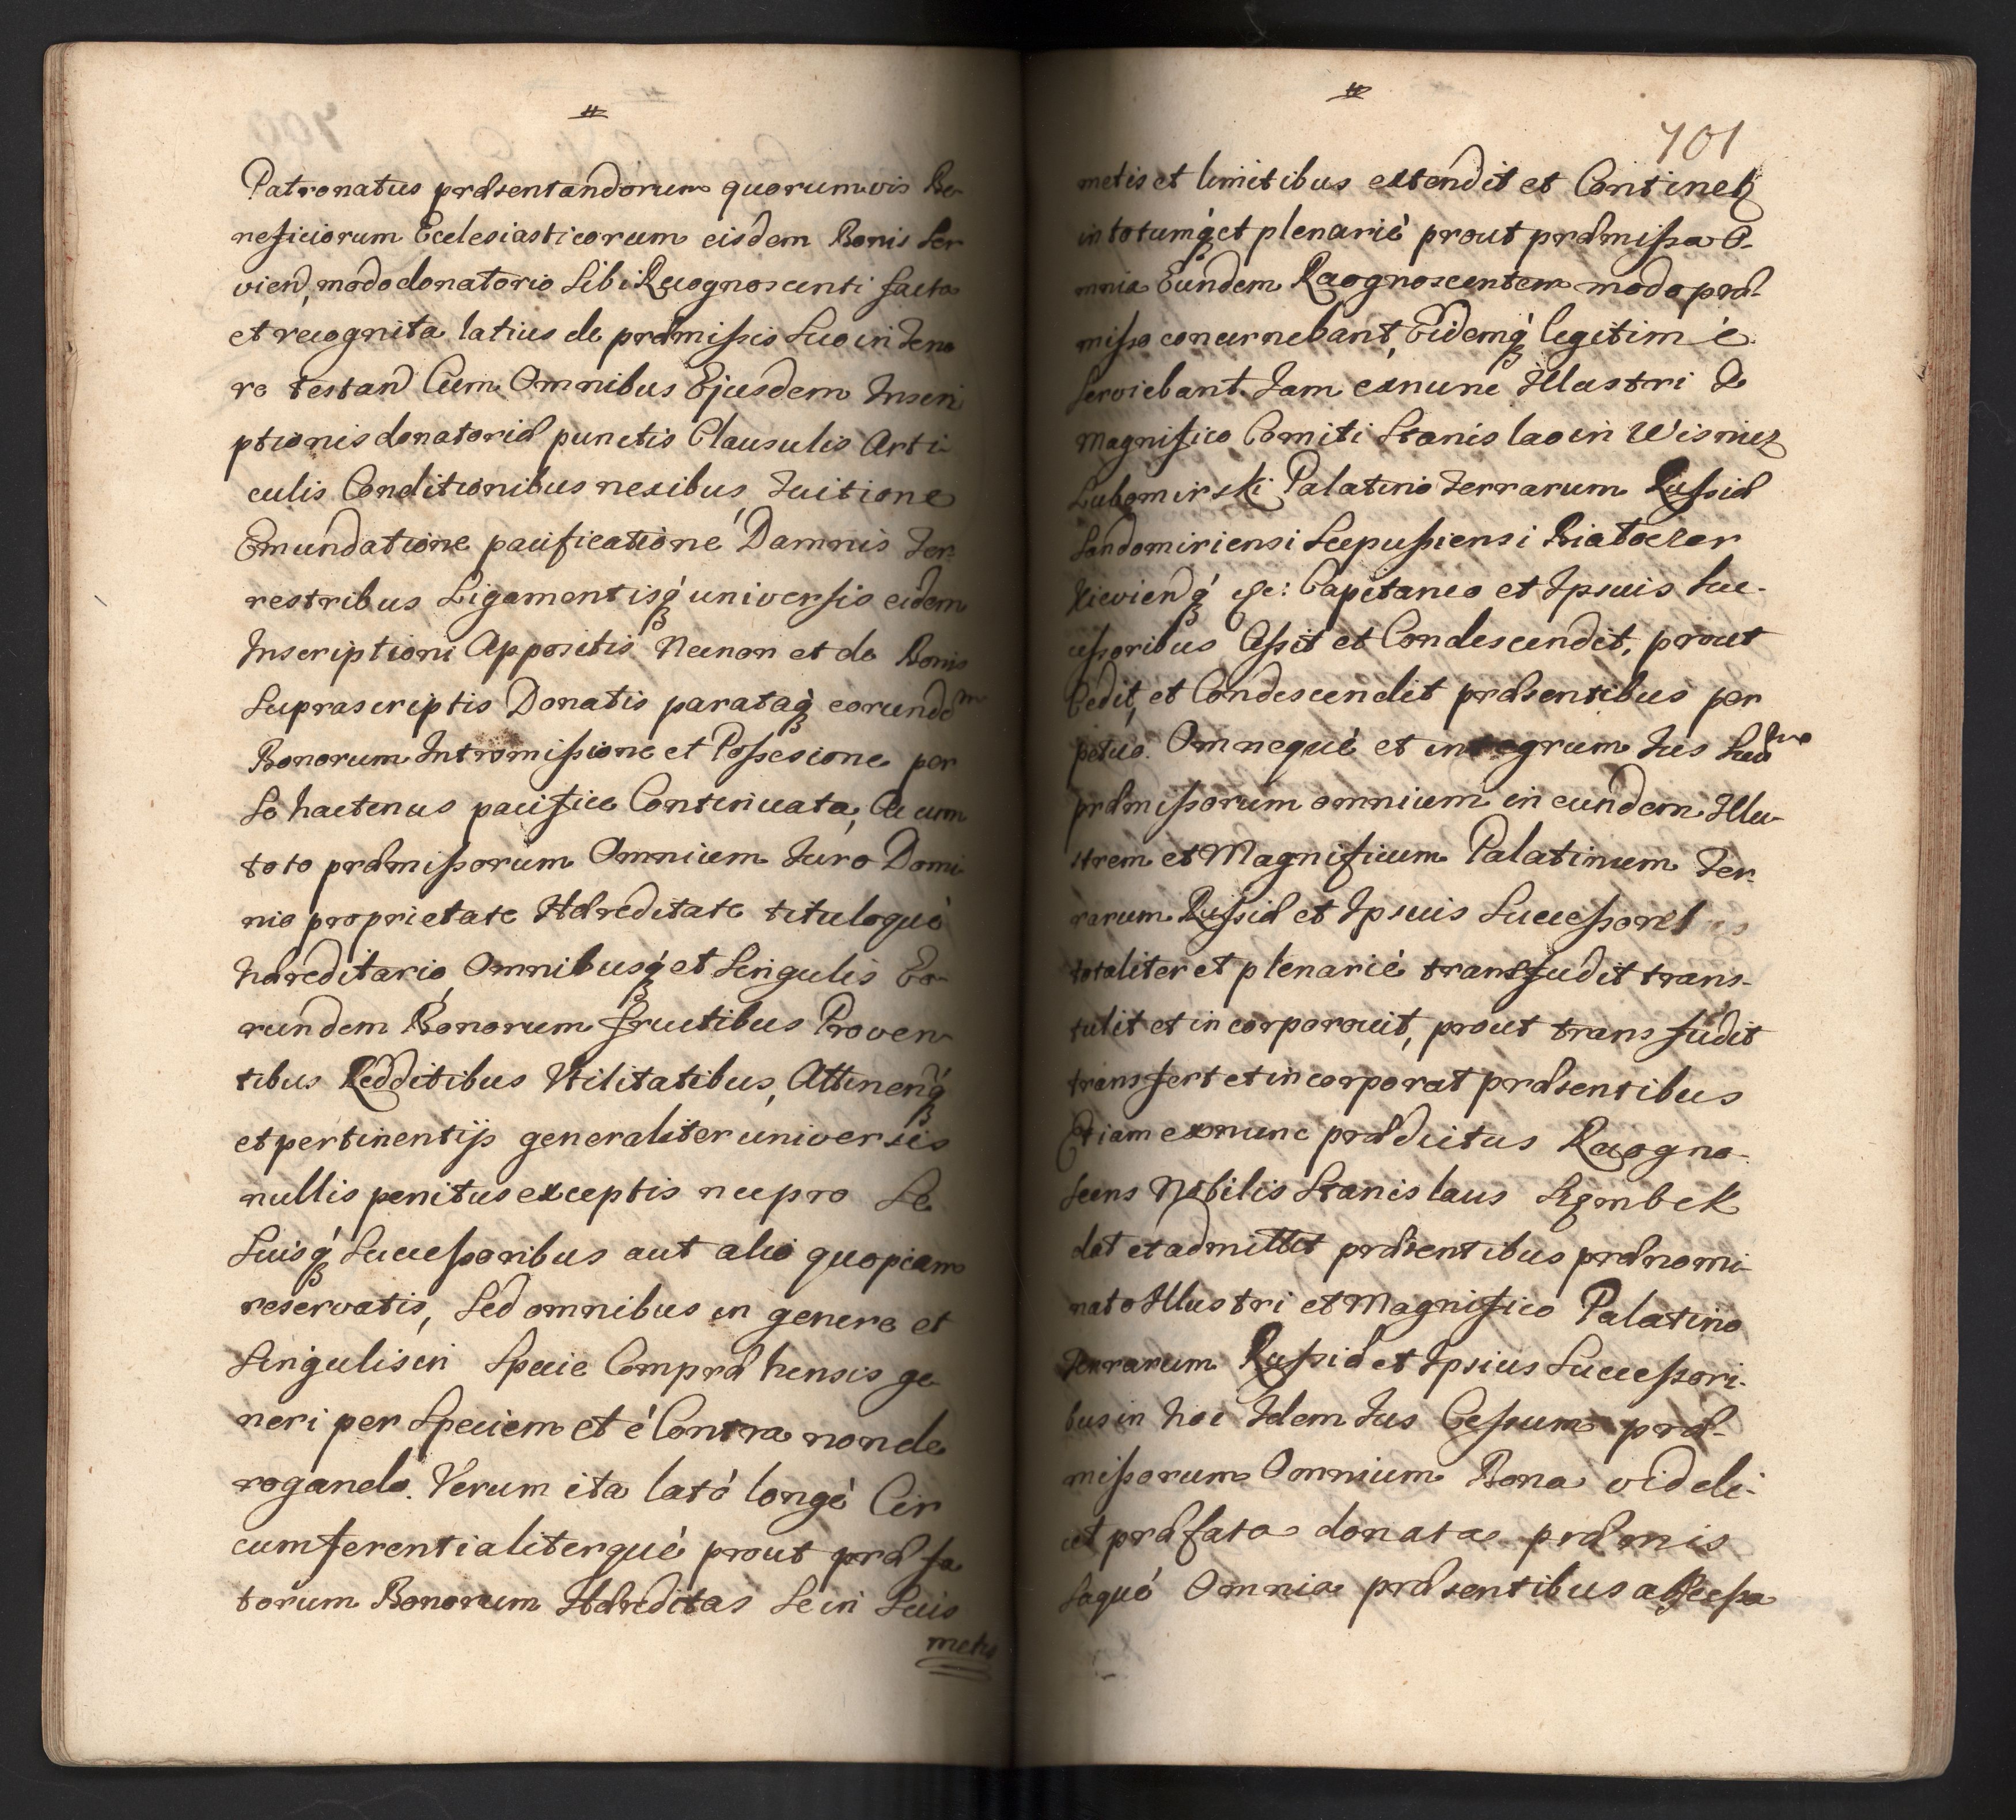 Patronatus præsentandorum quorumvis Be-
neficiorum Ecclesiasticorum eisdem Bonis Ser
viend, modo donatorio Sibi Recognoscenti facta
et recognita latius de præmissis Suo in Teno
re testan Cum Omnibus Ejusdem Inscri
ptionis donatoriæ punctis Clausulis Arti
culis Conditionibus nexibus Tuitione
Emundatione pacificatione Damnis Ter-
restribus Ligamentisq́ universis eidem
Inscriptioni Appositis Necnon et de Bonis
Suprascriptis Donatis parataq́ eorunde͞m
Bonorum Intromissione et Possesione per
Se hactenus pacifice Continuata, Ac cum
toto præmissorum Omnium Jure Domi
nio proprietate Hæreditate tituloque
hæreditario, Omnibusq́ et Singulis Eo-
rundem Bonorum fructibus Proven
tibus Redditibus Utilitatibus, Attinenq́
et pertinentijs generaliter universis
nullis penitus exceptis nec pro Se
Suisq́ Successoribus aut alio quopiam
reservatis, Sed omnibus in genere et
Singulis in Specie Compræhensis ge
neri per Speciem et é Contra non de
rogando. Verum ita laté longé Cir
cumferentialiterque prout præfa
torum Bonorum Hæreditas Se in Suis
metis
701
metis et limitibus extendit et Continet
in totumq́ et plenarié prout præmissa O-
mnia Eundem Recognoscentem modo præ-
misso concernebant, Eidemq́ legitimé
Serviebant. Jam exnunc Illustri &
Magnifico Comiti Stanislao in Wisnicz
Lubomirski Palatino Terrarum Russiæ
Sandomiriensi Scepusiensi Biatocer
Kievienq́ &c: Capitaneo et Ipsius Suc-
cessoribus Cessit et Condescendit, prout
Cedit, et Condescendit præsentibus per
petuo. Omneque et integrum Jus Suum
præmissorum omnium in eundem Illu-
strem et Magnificum Palatinum Ter-
rarum Russiæ et Ipsius Successores
totaliter et plenarié transfudit trans-
tulit et incorporavit, prout transfudit
transfert et incorporat præsentibus
Etiam exnunc prædictus Recogno-
scens Nobilis Stanislaus Szembek
dat et admittit præsentibus prænomi-
nato Illustri et Magnifico Palatino
Terrarum Russiæ et Ipsius Successori-
bus in hoc Idem Jus Cessum præ-
missorum Omnium Bona videli-
cet præfata donata præmis
saque Omnia præsentibus